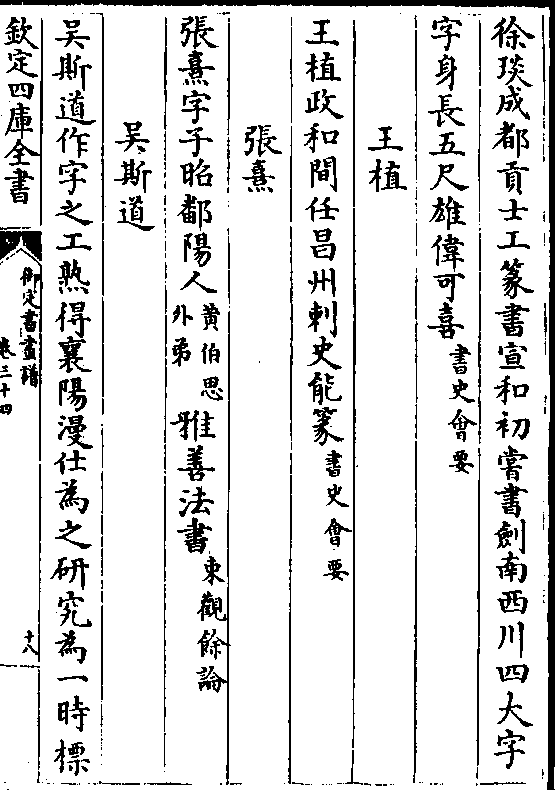 徐琰成都貢士工篆書宣和初嘗書劍南西川四大字
字身長五尺雄偉可喜書史會要
王植
王植政和間任昌州刺史能篆書史會要
張熹
張熹字子昭鄱陽人黄伯思外弟雅善法書東觀餘論
吴斯道
吴斯道作字之工熟得襄陽漫仕為之研究為一時標
欽定四庫全書
御定書畫譜
卷三十四
十八